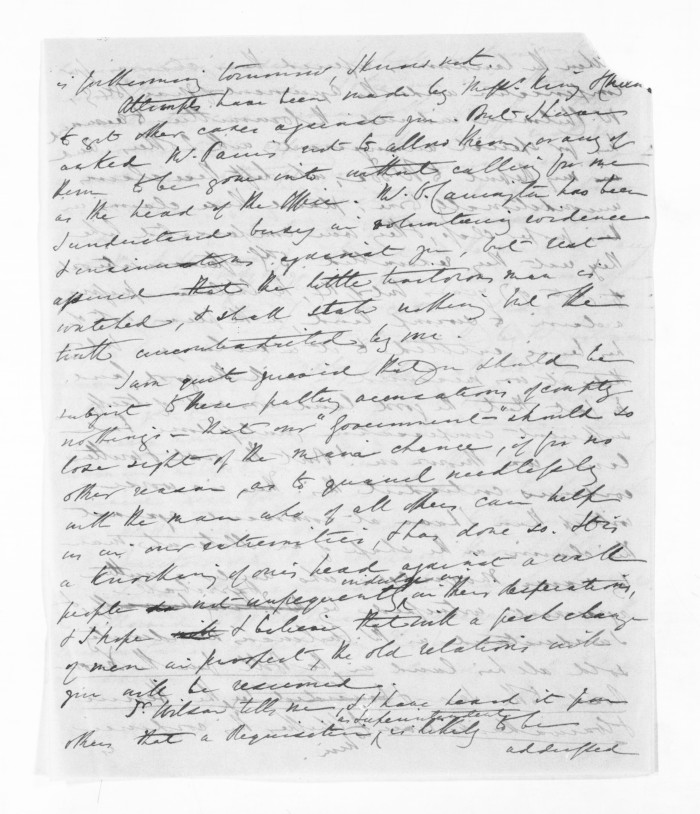 is forthcoming tomorrow, I know not.
Attempts have been made by Messrs. King &
to get other cases against you. But I have
asked Mr. not to allow them, or any of
them to be gone into without calling for me
as the head of the Office. Mr. has been
I understand busy in volunteering evidence
& insinuations against you, but rest
assured that the little traitorous man is
watched, & shall state nothing but the
truth uncontradicted by me.
I am quite grieved that you should be
subject to these paltry accusations of empty
nothings - that our "Government" should so
lose sight of the main chance, if for no
other reason, as to quarrel needlessly
with the man who of all others can help
us in our extremities, & has done so. It is
a knocking of one's head against a wall
people not unfrequently indulge in in their desperation,
& I hope & believe that with a fresh change
of men in prospect, the old relations with
you will be resumed.
Dr Wilson tells me, & I have heard it from
others that a Requisition as Superintendent is likely to be
addressed